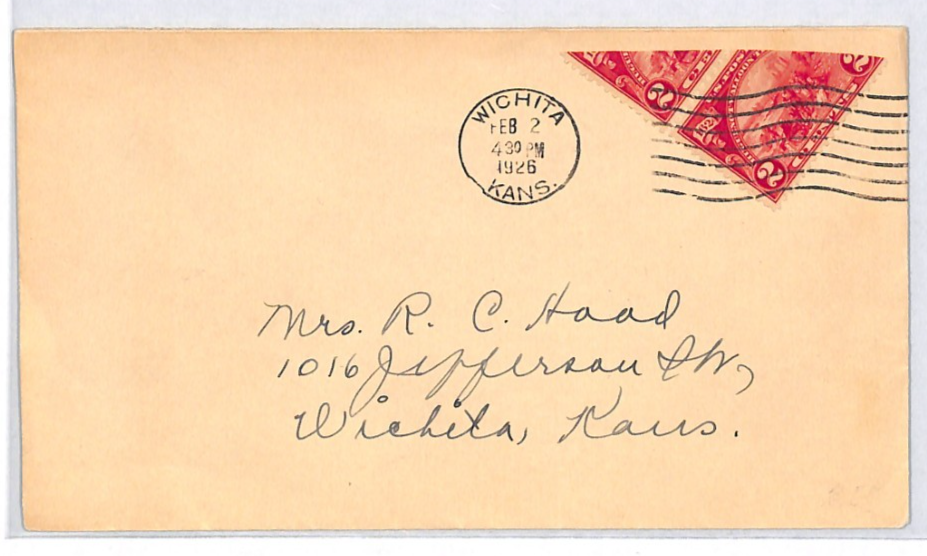 WICHITA
FEB 2
4 30 PM
1926
KANS.
2
2
2
Mrs. R. C. Hood
1016 Jefferson
Wichita, Kans.